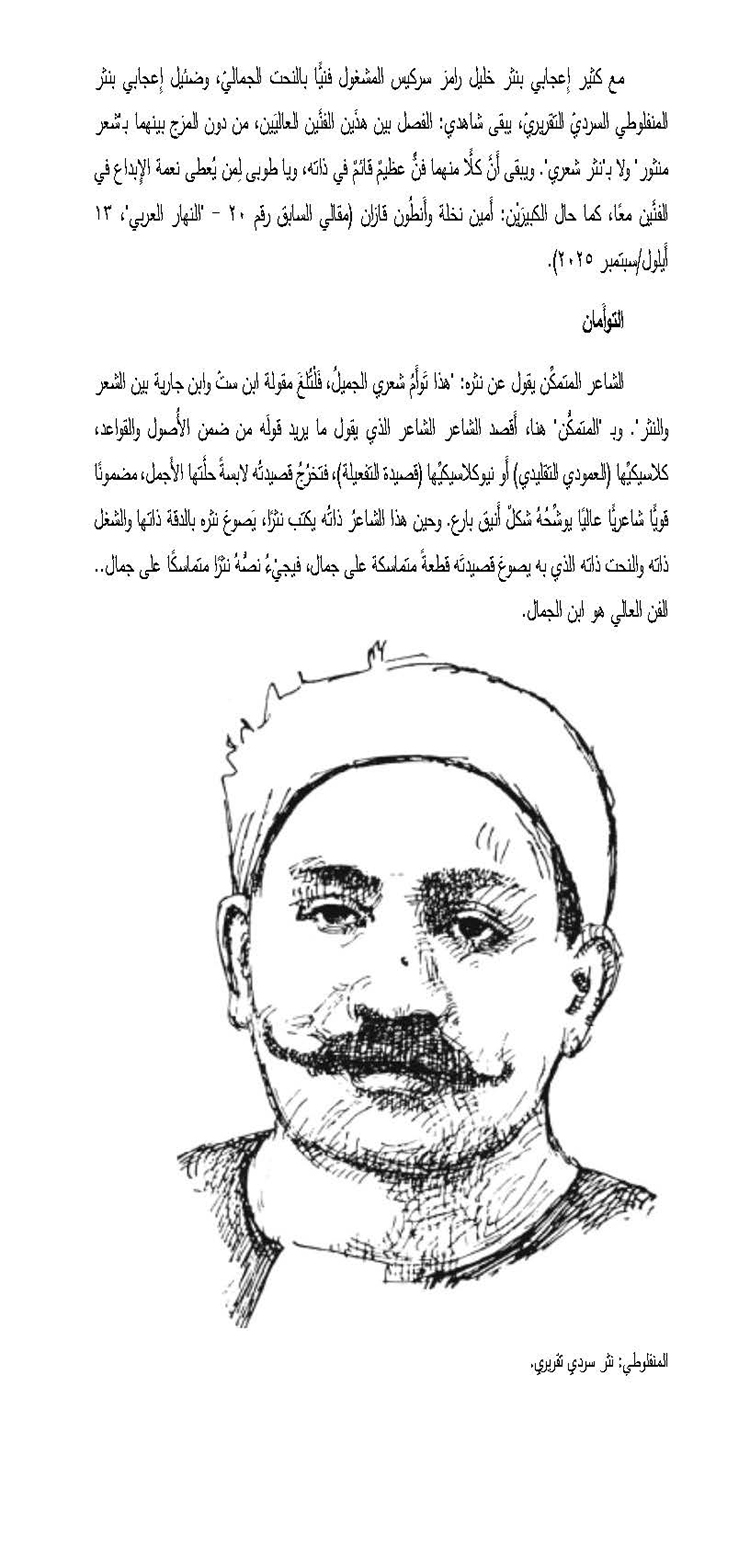 مع كثير إِعجابي بنثر خليل رامز سركيس المشغول فنيًّا بالنحت الجماليّ، وضئيل إِعجابي بنثر
المنفلوطي السرديّ التقريريّ، يبقى شاهدي: الفصل بين هذَين الفنَّين العاليَين، من دون المزج بينهما بـ"شعر
منثور" ولا بـ"نثر شعري". ويبقى أَنَّ كلًّا منهما فنٌّ عظيمٌ قائمٌ في ذاته، ويا طوبى لِمن يُعطى نعمة الإِبداع في
الفنَّين معًا، كما حال الكبيرَيْن: أَمين نخلة وأَنطُون قازان (مقالي السابق رقم ٢٠ - "النهار العربي"، ١٣
أَيلول/سبتمبر ٢٠٢٥).
التوأَمان
الشاعر المتمكِّن يقول عن نثره: "هذا تَوأَمُ شعري الجميلُ، فَلْتُلغَ مقولة ابن ستّ وابن جارية بين الشعر
والنثر". وبـ "المتمكِّن" هنا، أَقصد الشاعر الشاعر الذي يقول ما يريد قولَه من ضمن الأُصول والقواعد،
كلاسيكيِّها (العمودي التقليدي) أَو نيوكلاسيكيِّها (قصيدة التفعيلة)، فتخرُجُ قصيدتُه لابسةً حلَّتها الأَجمل، مضمونًا
قويًّا شاعريًّا عاليًا يوشِّحُهُ شكلٌ أَنيق بارع. وحين هذا الشاعرُ ذاتُه يكتب نثرًا، يَصوغ نثره بالدقة ذاتها والشغل
ذاته والنحت ذاته الذي به يصوغ قصيدتَه قطعةً متماسكة على جمال، فيجيْءُ نصُّهُ نثرًا متماسكًا على جمال..
الفن العالي هو ابن الجمال.
المنفلوطي: نثر سرديٍ تقريريٍ.